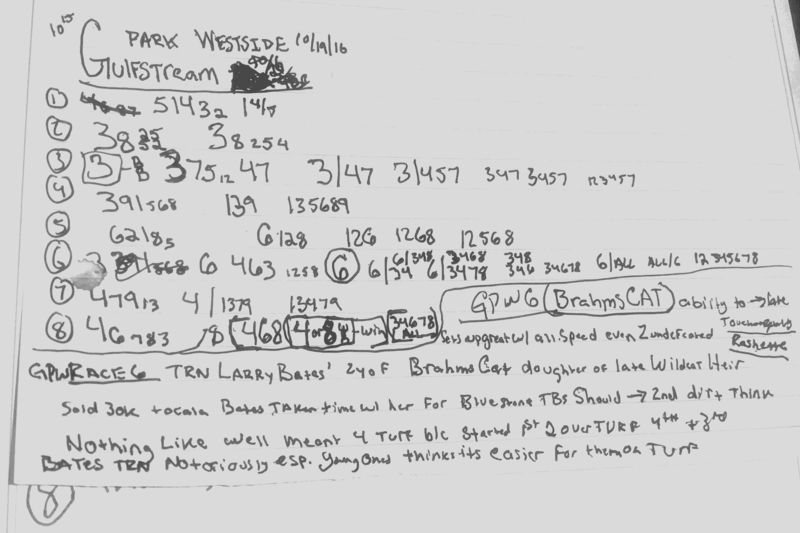 10 15
PARK WESTSIDE 10/19/16
Gulfstream
① 51432 14/7
② 38 25 38254
③ 3 - 375,12 47 3/47 3/457 347 3457 123457
④ 391568 139 135689
⑤ 62185 6128 126 1268 12568
⑥ 3 6 463 1258 ⑥ 6/34 6/348 6/3478 3468 348 346 34678 6/ALL ALL/6 12345678
⑦ 47913 4/1379 13479
⑧ 46783 /8 468 4 or 8 - win 34678 ALL
GPW6 BrahmsCAT ability to → late
Sets up great w/ all speed even 2 undefeated Rashette
GPW RACE 6 TRN LARRY Bates' 2yo F Brahms Cat daughter of late Wildcat Heir
Sold 30K + ocala Bates TAken time w/ her For Bluestone TBs Should → 2nd dirt Think
Nothing Like well meant 4 Turf b/c started 1st 2 over TURF 4th + 3rd
BATES TRN Notoriously esp. young ones thinks its easier for them on TURF
8